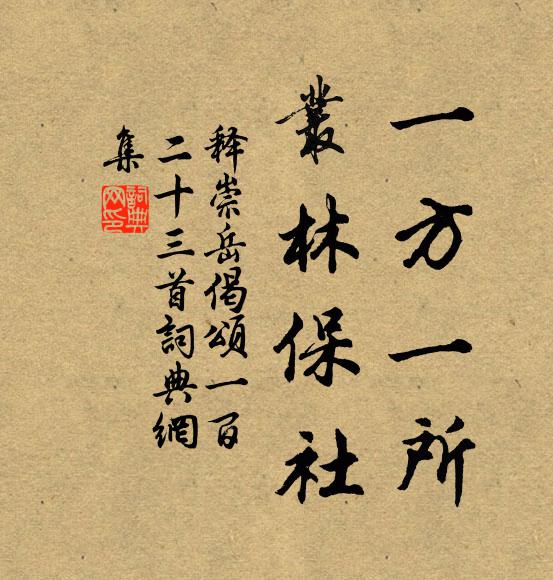 一方一所
叢林保社
释崇岳偈頌一百
二十三首詞典網
集
詞典
网印